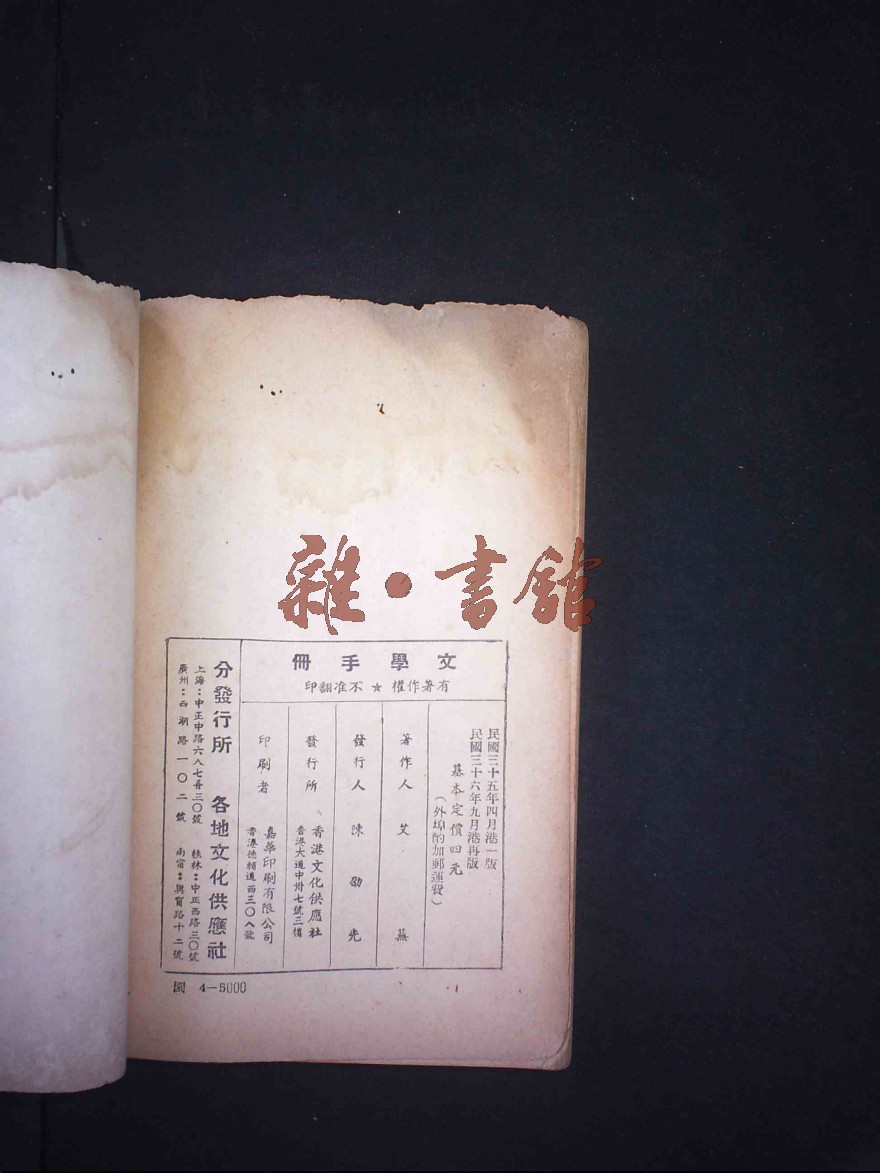 雜·書館
文學手冊
有著作權★不准翻印
民國三十五年四月港一版
民國三十六年九月港再版
基本定價四元
(外埠酌加郵運費)
著作人 艾蕪
發行人 陳劭先
發行所 香港文化供應社
香港大道中卅七號三樓
印刷者 嘉華印刷有限公司
香港德輔道西三〇八號
分發行所 各地文化供應社
上海:中正中路六八七弄三〇號 桂林:中正西路三〇號
廣州:西湖路一〇二號 南寧:興寧路十二號
圖 4—5000